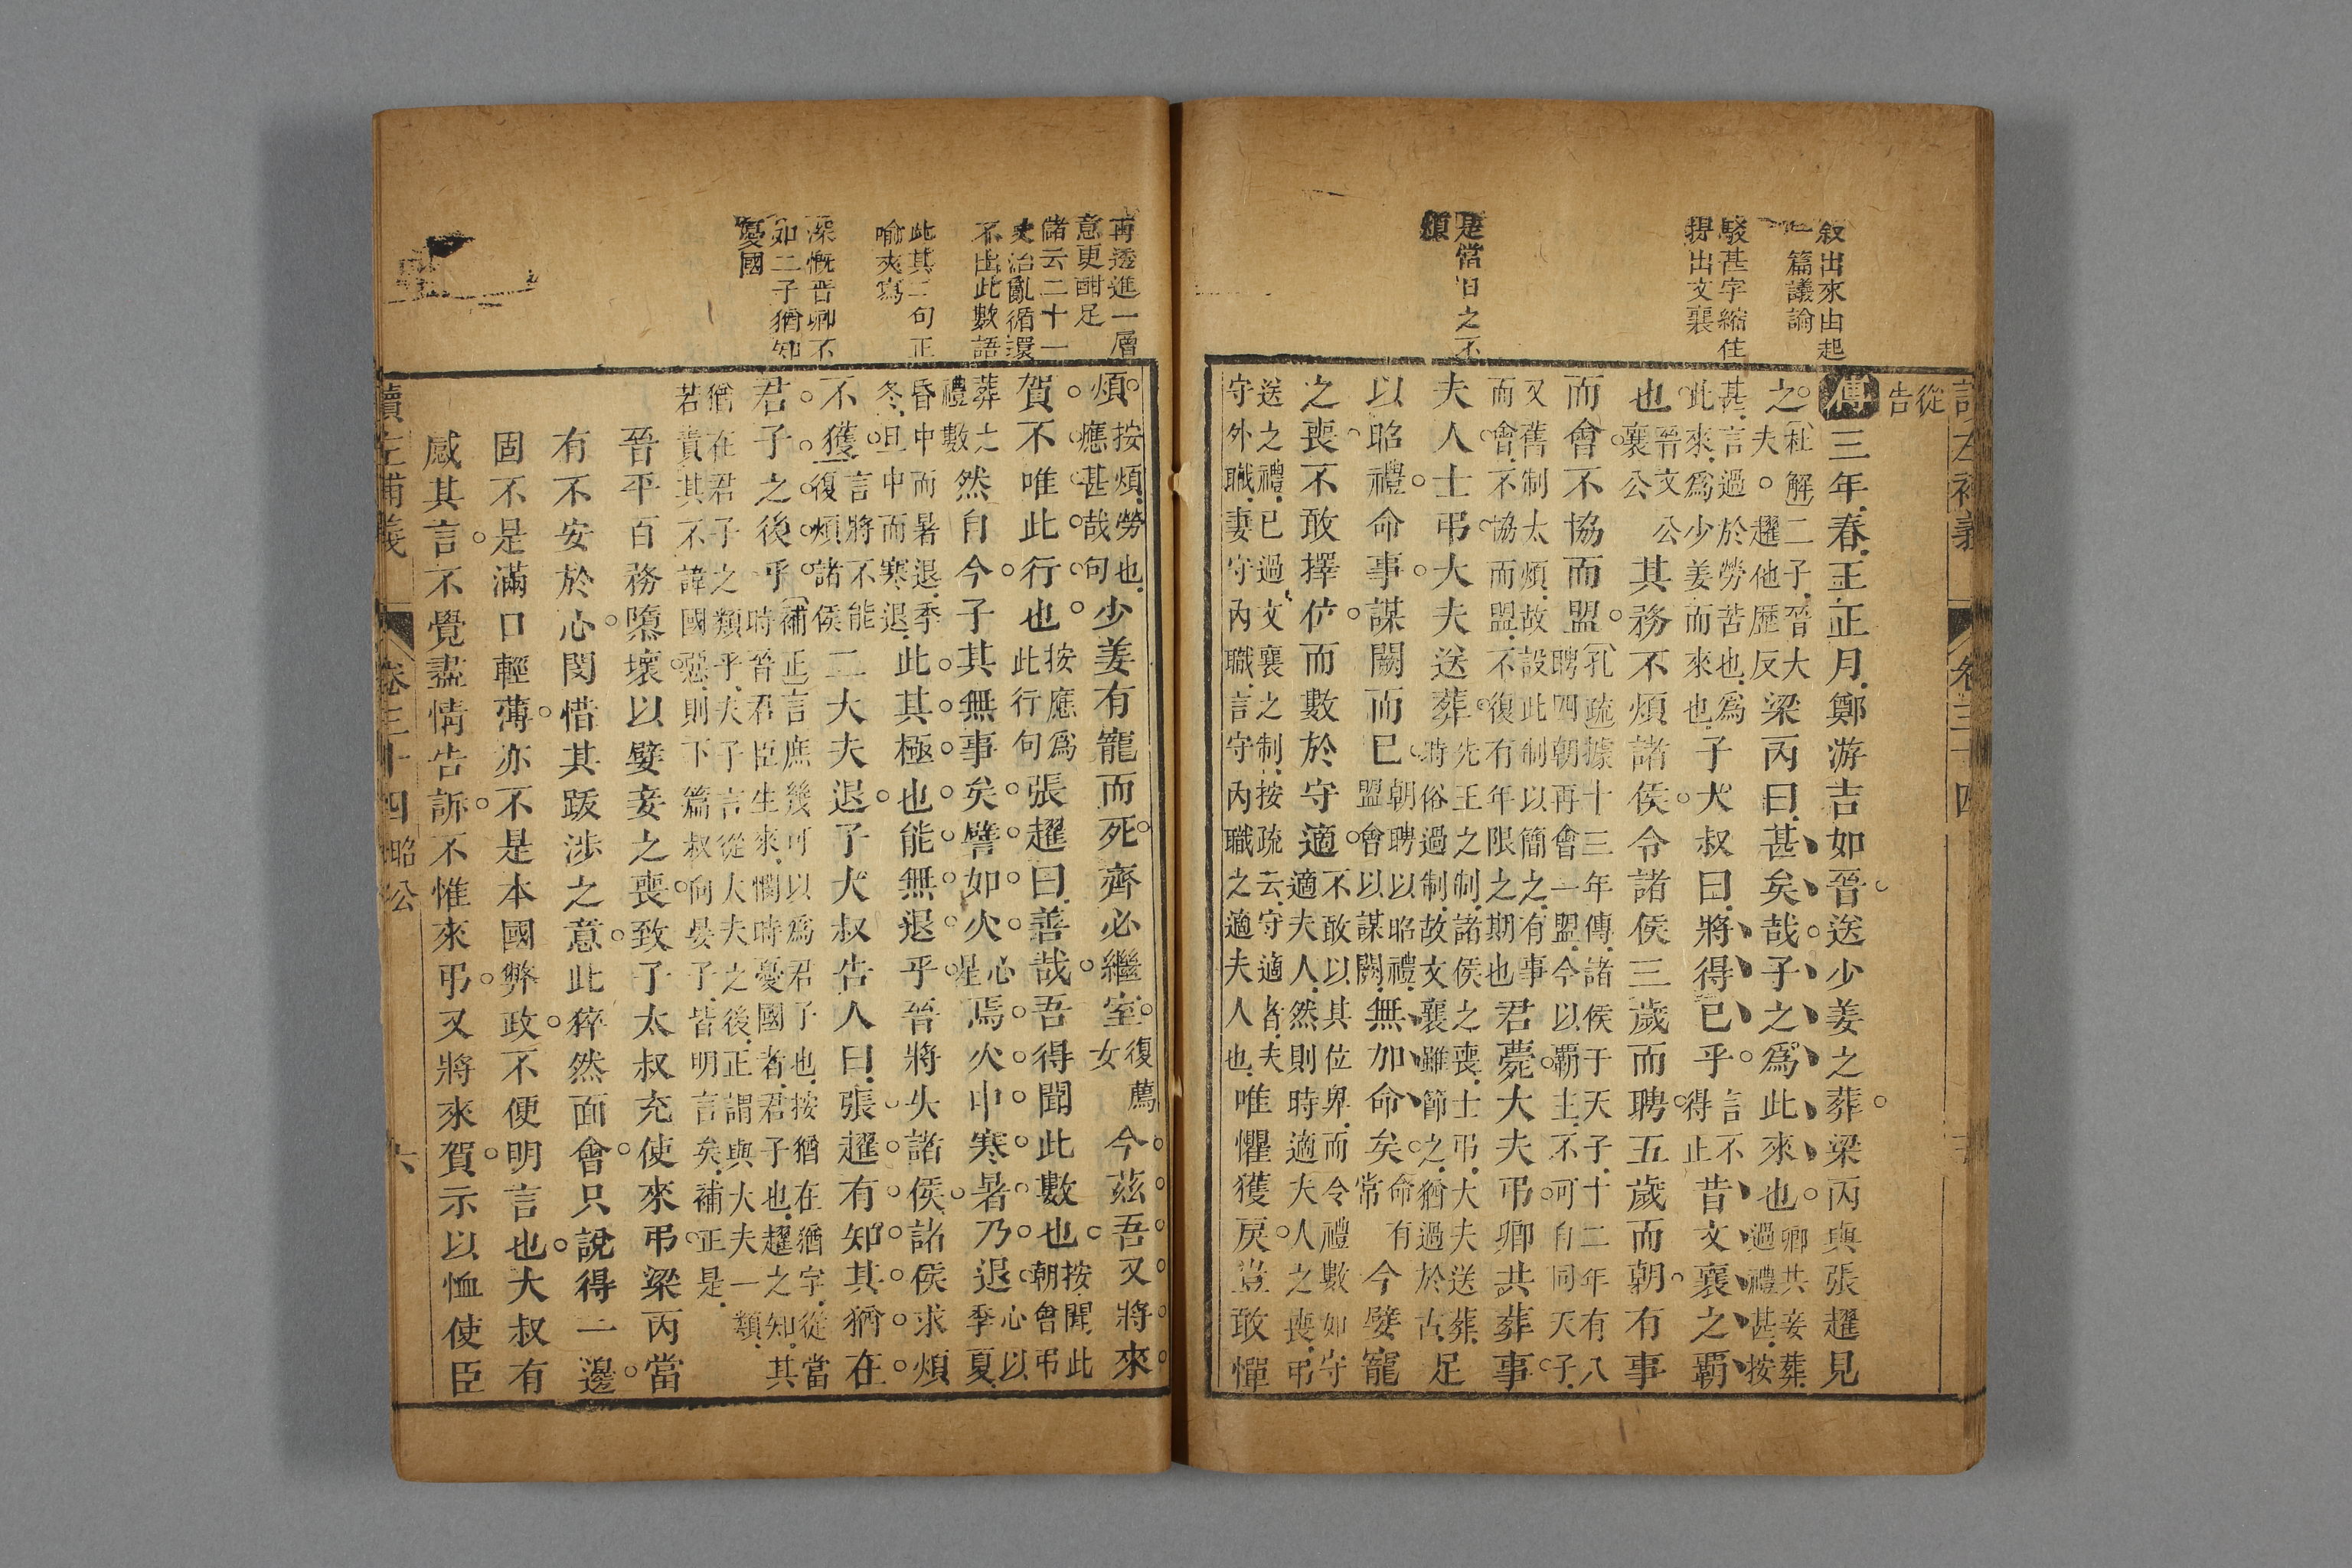 叙出來由起
一篇議論
駁甚字縮住
提出文襄
是當日之不
煩
從
告
傳三年春王正月鄭游吉如晉送少姜之葬梁丙與張趯見
之杜解二子晉大夫趯他歷反梁丙曰甚矣哉子之爲此來也卿共妾葬過禮甚按
甚言過於勞苦也爲此來爲少姜而來也子大叔曰將得已乎言不得止昔文襄之霸
也晉文公襄公其務不煩諸侯令諸侯三歲而聘五歲而朝有事
而會不協而盟孔疏據十三年傳諸侯于天子十二年有八聘四朝再會一盟今以霸主不可自同天子
又舊制太煩故設此制以簡之有事而會不協而盟不復有年限之期也君薨大夫弔卿共葬事
夫人士弔大夫送葬先王之制諸侯之喪士弔大夫送葬時俗過制故文襄雖節之猶過於古足
以昭禮命事謀闕而已朝聘以昭禮盟會以謀闕無加命矣命有常今嬖寵
之喪不敢擇位而數於守適不敢以其位卑而令禮數如守適夫人然則時適夫人之喪弔
送之禮已過文襄之制按疏云守適者夫守外職妻守內職言守內職之適夫人也唯懼獲戾豈敢憚
再透進一層
意更酣足
儲云二十一
史治亂循環
不出此數語
此其二句正
喻夾寫
深慨晉卿不
如二子猶知
憂國
煩按煩勞也應甚哉句少姜有寵而死齊必繼室復薦女今茲吾又將來
賀不唯此行也按應爲此行句張趯曰善哉吾得聞此數也按聞此朝會弔
葬之禮數然自今子其無事矣譬如火心星焉火中寒暑乃退心以季夏
昏中而暑退季冬旦中而寒退此其極也能無退乎晉將失諸侯諸侯求煩
不獲言將不能復煩諸侯二大夫退子大叔告人曰張趯有知其猶在
君子之後乎補正言庶幾可以爲君子也按猶在猶字從當時晉君臣生來憫時憂國者君子也趯之知其
猶在君子之類乎夫子言從大夫之後正謂與大夫一類若責其不諱國惡則下篇叔向晏子皆明言矣補正是
晉平百務隳壞以嬖妾之喪致子太叔充使來弔梁丙當
有不安於心閔惜其跋涉之意此猝然面會只說得一邊
固不是滿口輕薄亦不是本國弊政不便明言也大叔有
感其言不覺盡情告訴不惟來弔又將來賀示以恤使臣
讀左補義 卷三十四 昭公 六